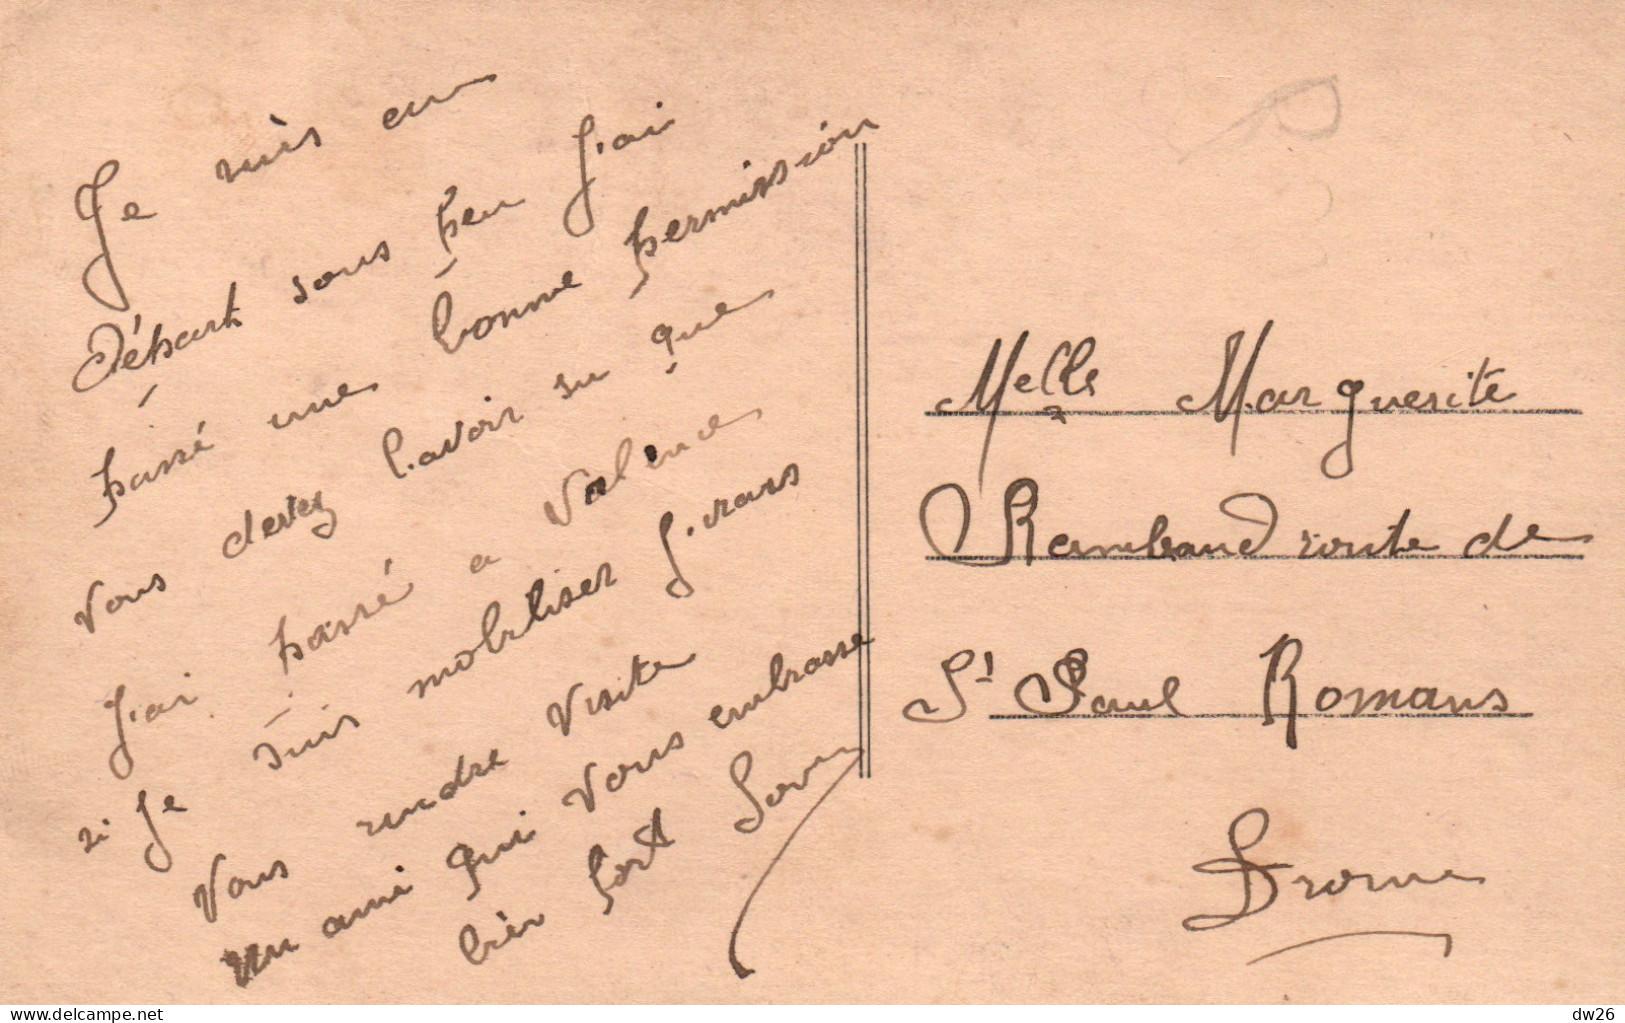 Je suis en
Départ sous peu J'ai
passé une bonne permission
vous devez l'avoir su que
J'ai passé a Valence
si Je suis mobiliser J'irais
Vous rendre visite
un ami qui vous embrasse
bien fort
Melle Marguerite
Rambaud route de
St Paul Romans
Drome
www.delcampe.net
dw26